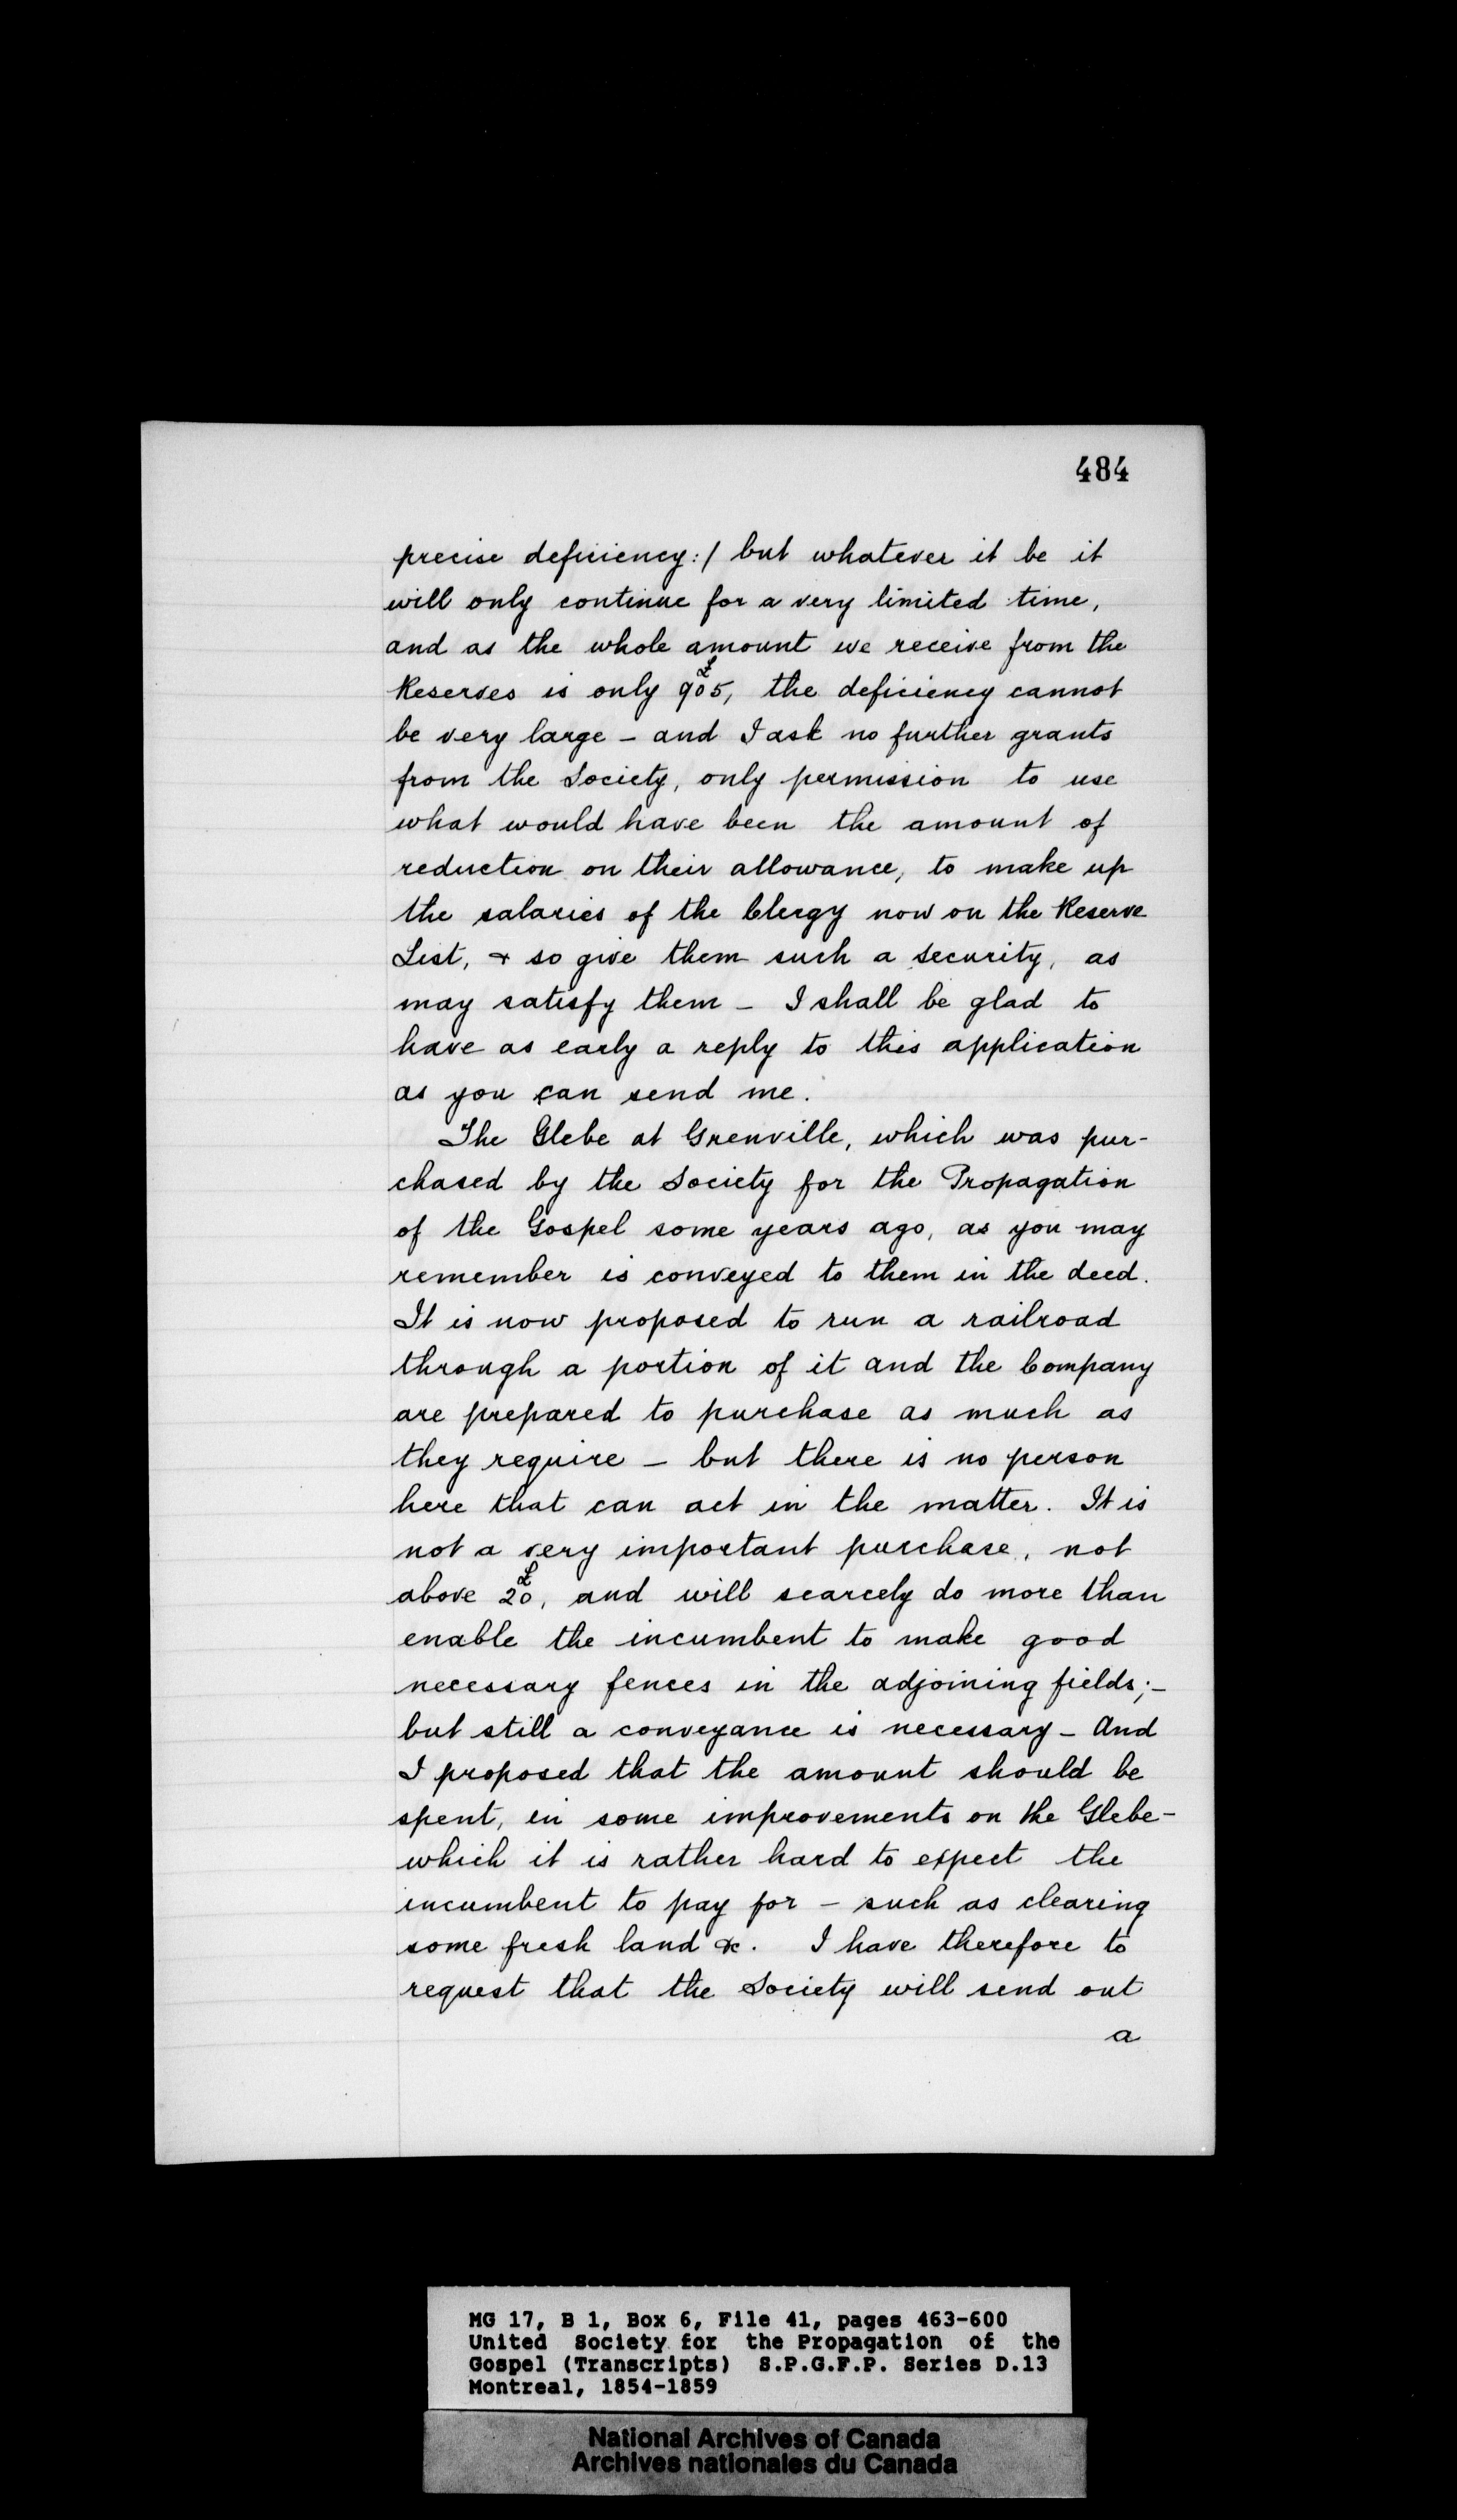 484
precise deficiency:/ but whatever it be it
will only continue for a very limited time,
and as the whole amount we receive from the
Reserves is only 905£, the deficiency cannot
be very large – and I ask no further grants
from the Society, only permission to use
what would have been the amount of
reduction on their allowance, to make up
the salaries of the Clergy now on the Reserve
List, & so give them such a security, as
may satisfy them – I shall be glad to
have as early a reply to this application
as you can send me.
The Glebe at Grenville, which was pur-
chased by the Society for the Propagation
of the Gospel some years ago, as you may
remember is conveyed to them in the deed.
It is now proposed to run a railroad
through a portion of it and the Company
are prepared to purchase as much as
they require – but there is no person
here that can act in the matter. It is
not a very important purchase, not
above 20£, and will scarcely do more than
enable the incumbent to make good
necessary fences in the adjoining fields;–
but still a conveyance is necessary – And
I proposed that the amount should be
spent, in some improvements on the Glebe–
which it is rather hard to expect the
incumbent to pay for – such as clearing
some fresh land &c. I have therefore to
request that the Society will send out
a
MG 17, B 1, Box 6, File 41, pages 463-600
United Society for the Propagation of the
Gospel (Transcripts) S.P.G.F.P. Series D.13
Montreal, 1854-1859
National Archives of Canada
Archives nationales du Canada